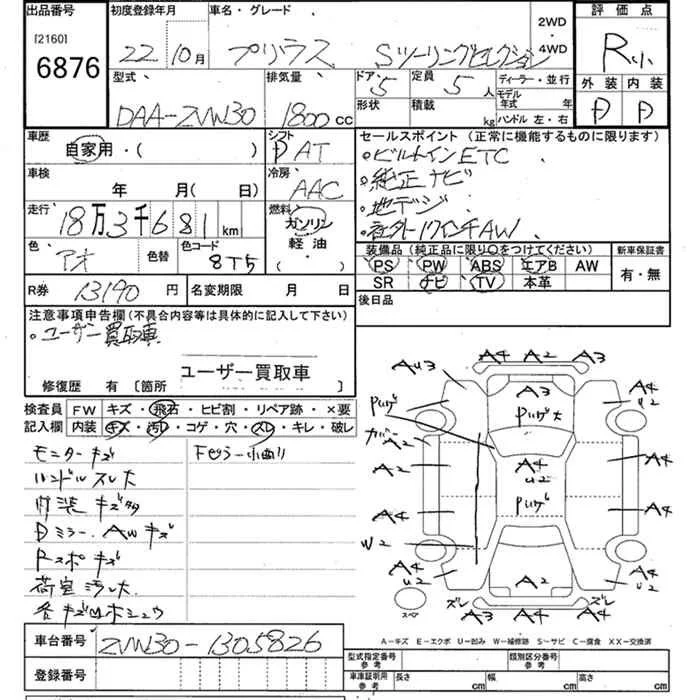 出品番号
[2160]
6876
初度登録年月
22 10月
車名・グレード
プリウス Sツーリングセレクション
2WD
・
4WD
評価点
R小
外装 内装
D D
型式
DAA-ZVW30
排気量
1800 cc
ドア 5
定員 5 人
形状
積載 kg
ディーラー・並行
モデル年式 年
ハンドル 左・右
車歴
自家用・( )
シフト
D AT
車検
年 月( 日)
冷房
AAC
走行
18万3千681 km
燃料
ガソリン
軽油
( )
色
アオ
色替
色コード
8T5
R券 13190 円
名変期限 月 日
セールスポイント(正常に機能するものに限ります)
○ビルトインETC
○純正ナビ
○地デジ
○社外17インチAW
装備品(純正品に限り○をつけてください)
PS PW ABS エアB AW
SR ナビ TV 本革
新車保証書
有・無
後日品
注意事項申告欄(不具合内容等は具体的に記入して下さい)
○ユーザー買取車
ユーザー買取車
修復歴 有 [箇所
検査員記入欄
FW キズ・飛石・ヒビ割・リペア跡・×要
内装 キズ・汚レ・コゲ・穴・スレ・キレ・破レ
モニターキズ
ハンドルスレ大
内装キズ多
Dミラー、AWキズ
Rスポキズ
荷室汚レ大
各キズ凹ホシュウ
Fピラー小曲り
A4 A2 A3
AU3
A3
A4
U2
A2
A2
A4
U2
A4
A4
A4
W2
A4
U2
A2
A4
U2
ズレ
ズレ
A3 A4 A4
スペア
A-キズ E-エクボ U-凹み W-補修跡 S-サビ C-腐食 XX-交換済
車台番号 ZVW30-1305826
登録番号
型式指定番号
参考
類別区分番号
参考
車庫証明用
参考
長さ cm 幅 cm 高さ cm